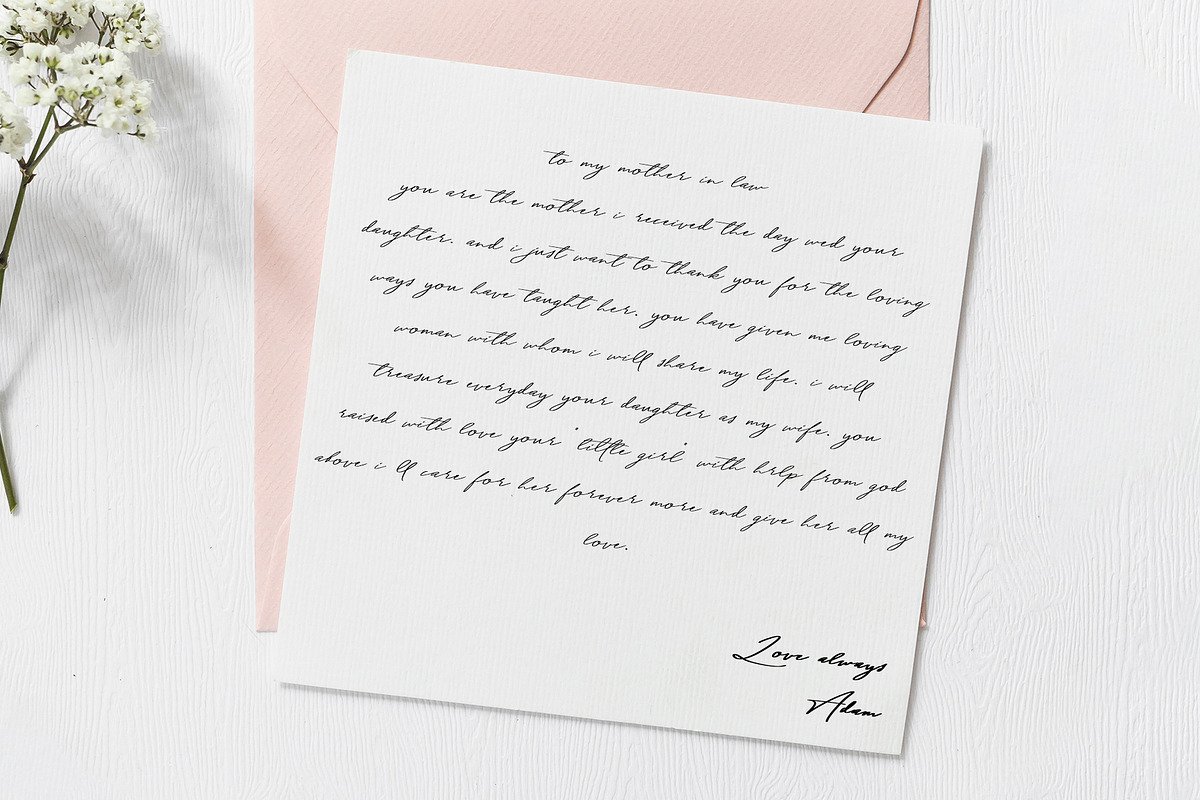 to my mother in law
you are the mother i received the day wed your
daughter. and i just want to thank you for the loving
ways you have taught her. you have given me loving
woman with whom i will share my life. i will
treasure everyday your daughter as my wife. you
raised with love your "little girl" with hrlp from god
above i ll care for her forever more and give her all my
love.
Love always
Adam